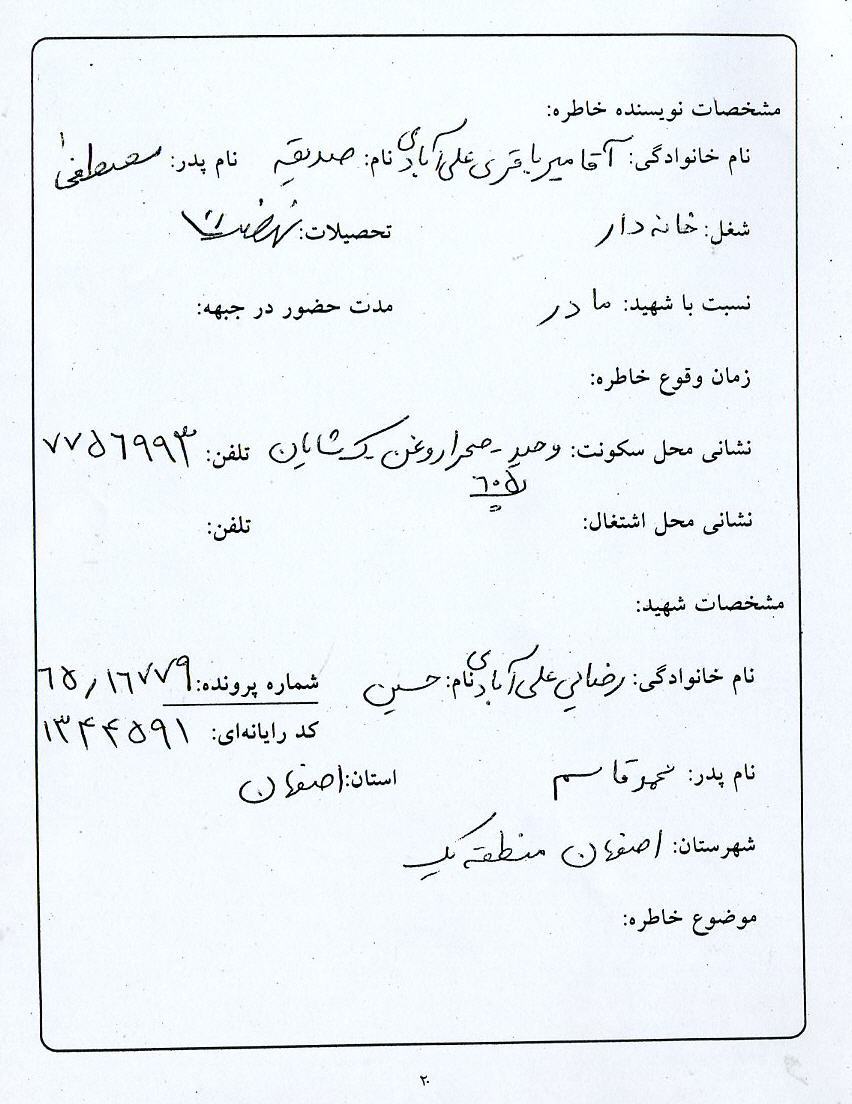 مشخصات نویسنده خاطره:
نام خانوادگی: آقا میر باقری علی آبادی نام: صدیقه نام پدر: مصطفی
شغل: خانه دار تحصیلات: نهضت
نسبت با شهید: مادر مدت حضور در جبهه:
زمان وقوع خاطره:
نشانی محل سکونت: وحید - صحرا روغن - ک شایان تلفن: ۷۷۵۶۹۹۳
۶۰۵
نشانی محل اشتغال: تلفن:
مشخصات شهید:
نام خانوادگی: رضایی علی آبادی نام: حسین شماره پرونده: ۶۵/۱۶۷۷۹
کد رایانه‌ای: ۱۳۴۴۵۹۱
نام پدر: محمد قاسم استان: اصفهان
شهرستان: اصفهان منطقه یک
موضوع خاطره:
۲۰